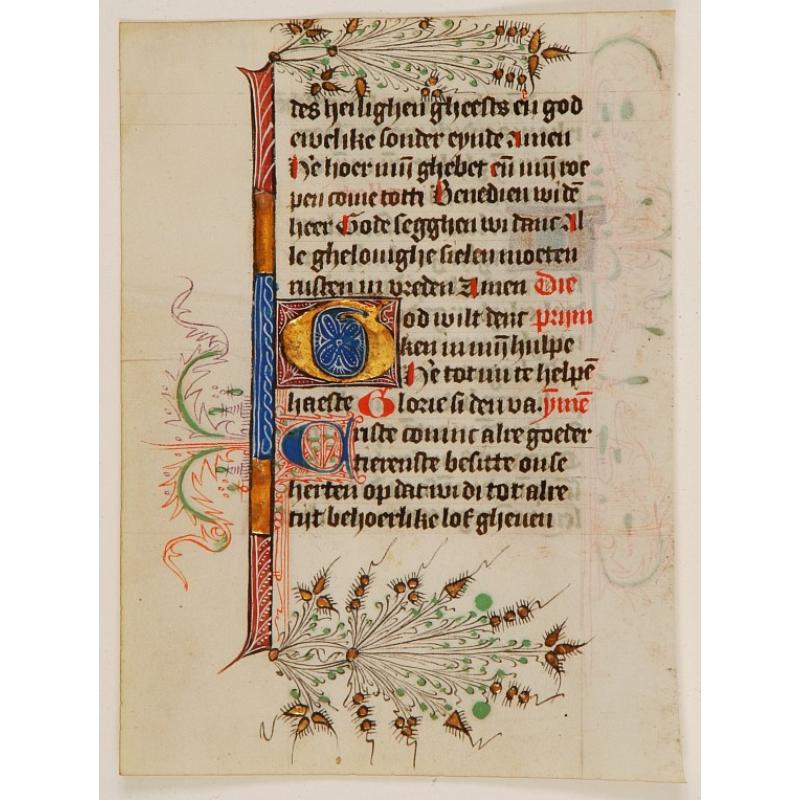 des heilighen gheests en̄ god
ewelike sonder eynde Amen
He hoer mijn ghebet en̄ mijn roe
pen come totti Benedien wi dē
heer Gode segghen wi danc Al
le ghelouighe sielen moeten
rusten in vreden Amen Die
God wilt denc prijm
ken in mijn hulpe
He tot mi te helpē
haeste Glorie si den va. ymnē
Criste cominc alre goeder
tierenste besitte onse
herten op dat wi di tot alre
tijt behoerlike lof gheuen